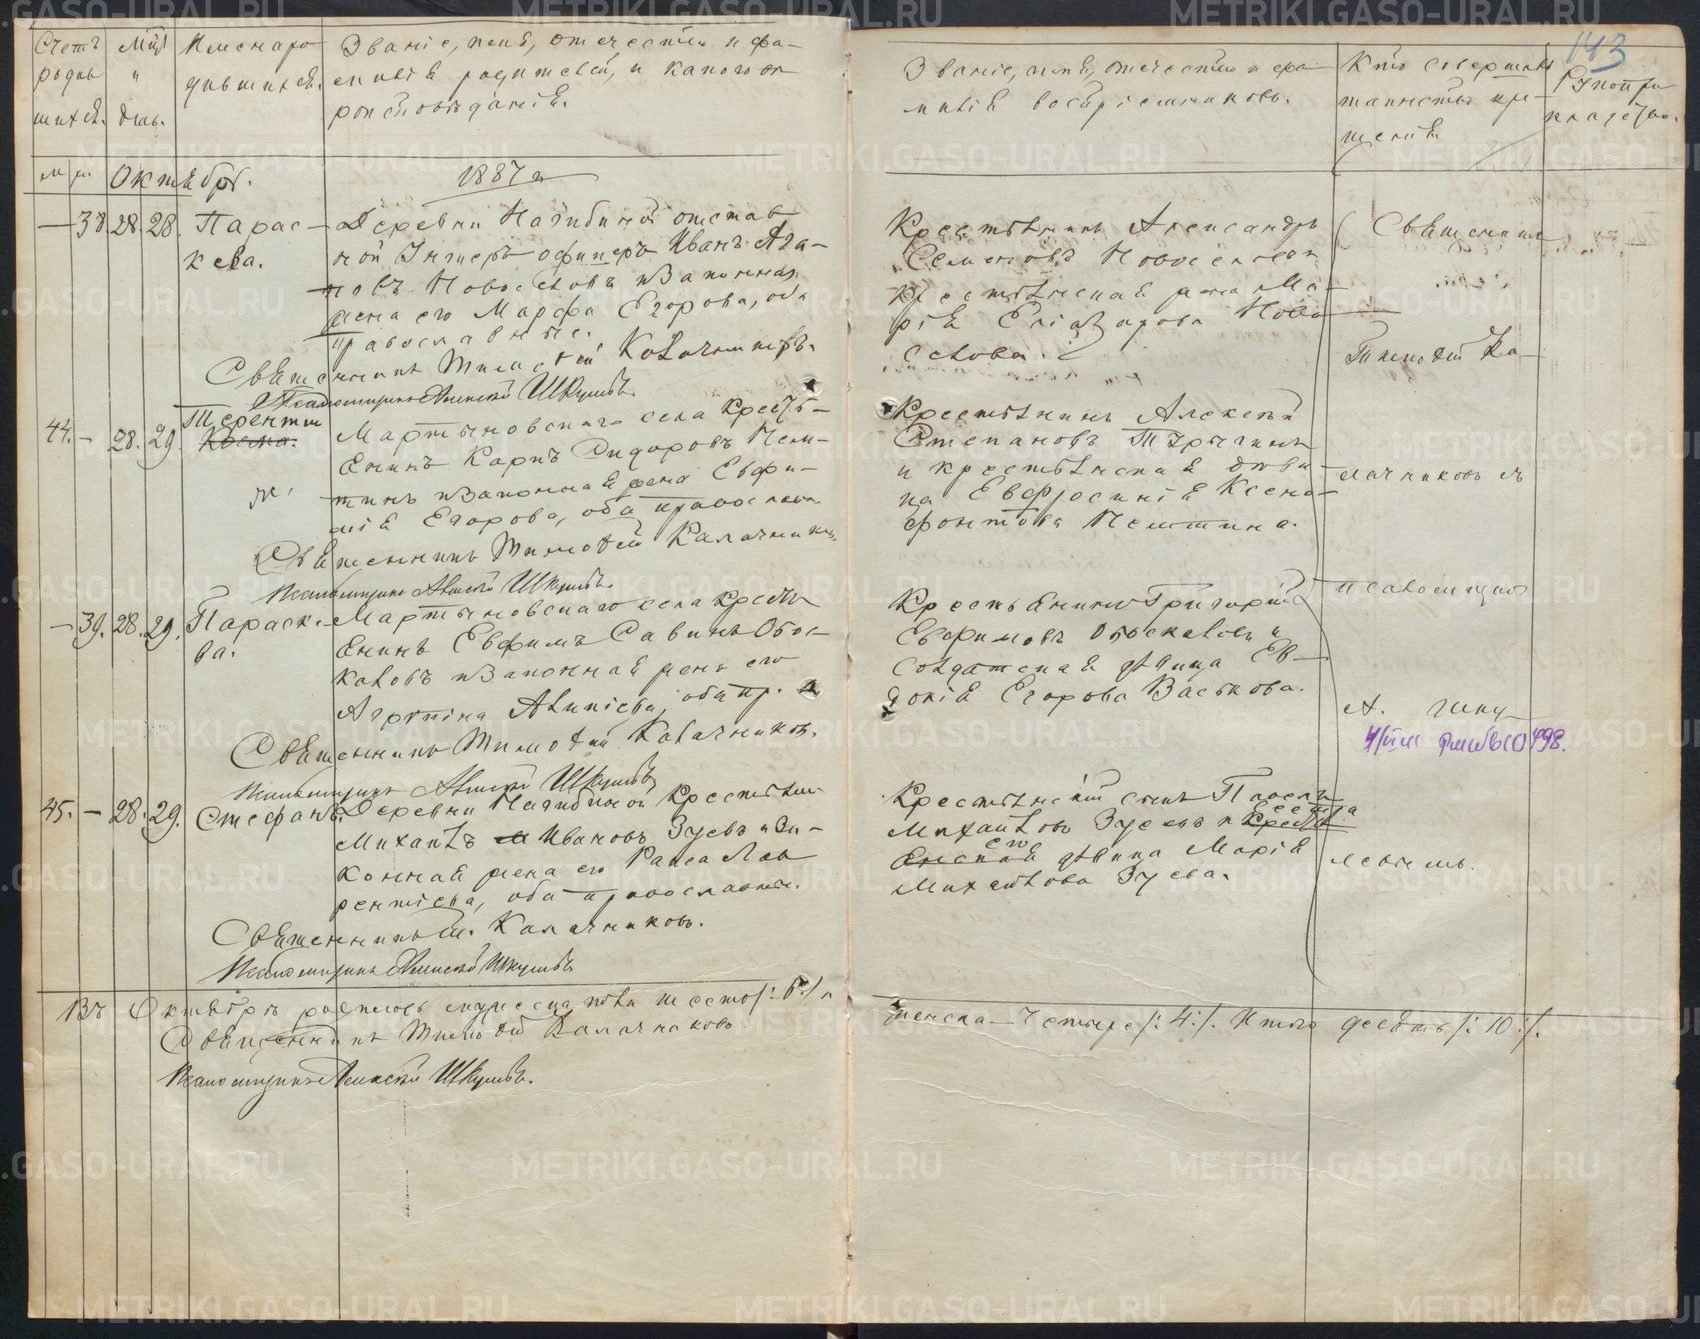 Счетъ
родив
шихся.
Мцъ
и
день.
Имена ро
дившихся.
Званіе, имя, отчество и фа-
милія родителей, и какого вѣ
роисповѣданія.
м ж Октябрь. 1887 г
— 38. 28. 28. Парас-
кева.
Деревни Нагибиной отстав
ной Унтеръ офицеръ Иванъ Ага-
Новоселовъ и законная
жена его Марфа Егорова, оба
православные.
Священникъ Тимофей Калачниковъ.
Псаломщикъ Алексѣй
44. — 28. 29. Терентій
Косма.
Мартыновскаго села Крестья-
янинъ Карпъ Сидоровъ Пелы-
и законная жена Евфи-
мія Егорова, оба православн.
Священникъ Тимофей Калачников
Псаломщикъ Алексѣй
— 39. 28. 29. Параске
ва.
Мартыновскаго села Кресть
янинъ Евфимъ Савинъ Обос-
каловъ и законная жена его
Агрипина, оба пр.
Священникъ Тимофей Калачниковъ.
Псаломщикъ Алексѣй
45. — 28. 29. Стефанъ.
Деревни Нагибиной Крестьян
Михаилъ Ивановъ Зуевъ и За-
конная жена его Раиса Лав
рентіева, оба православн.
Священникъ Т. Калачниковъ.
Псаломщикъ Алексѣй
Въ Октябрѣ родилось мужеска пола шесть /: 6 :/ и
Священникъ Тимофей Калачниковъ
Псаломщикъ Алексѣй
143
Званіе, имя, отчество и фа
милія воспріемниковъ.
Кто совершалъ
таинство кре-
щенія
Рукопри
кладство.
Крестьянинъ Александръ
Семеновъ Новоселовъ и
крестьянская жена Ма-
рія Еліазарова Ново
селова.
Священникъ
Тимофей Ка-
Крестьянинъ Алексѣй
Степановъ
и крестьянская дѣви-
ца Евфросинія Ксено-
фонтова
лачниковъ съ
псаломщико
Крестьянинъ Григорій
Евфимовъ Обоскаловъ и
Солдатская дѣвица Ев-
докія Егорова Васькова.
А. Шку
498.
Крестьянскій сынъ Павелъ
Михаиловъ Зуевъ и сестра
его дѣвица Марія
Михаилова Зуева.
левымъ.
женска — Четыре /: 4 :/. Итого десять /: 10 :/.
METRIKI.GASO-URAL.RU